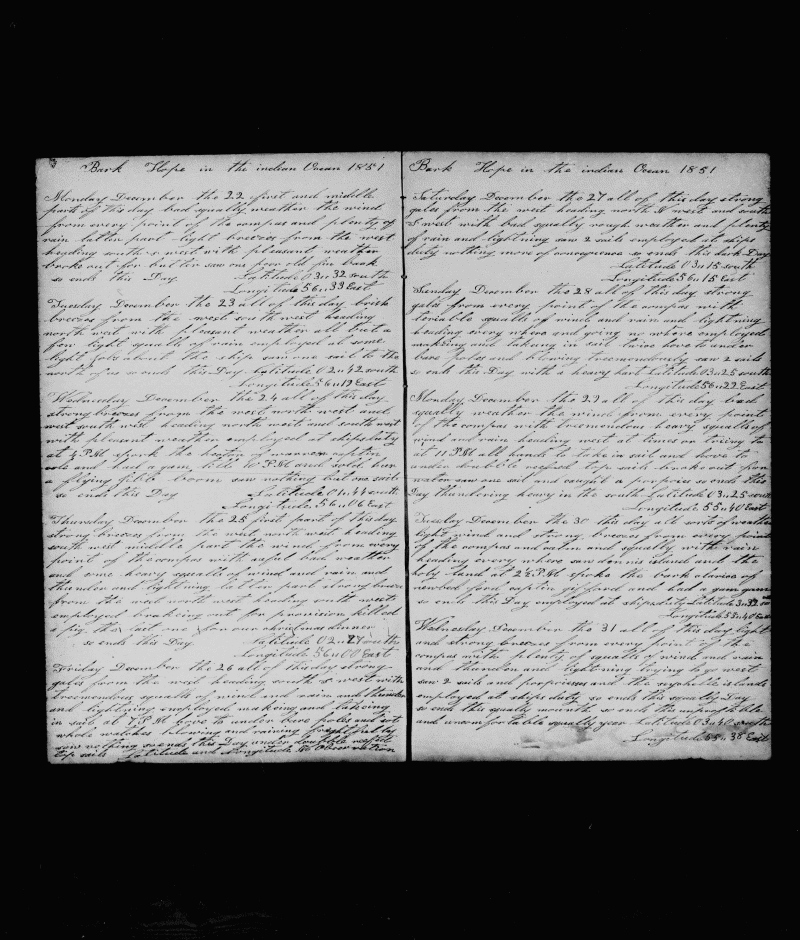 Bark Hope in the indian Ocean 1851
Monday December the 22 first and middle
part of this day bad squaly weather the wind
from every point of the compas and plenty of
rain latter part light breezes from the west
heading south & west with pleasant weather
broke out for butter saw one poor old fin back
so ends this Day Latitude 03 " 32 south
Longitude 56 " 33 East
Tuesday December the 23 all of this day brisk
breezes from the west south west heading
north west with pleasant weather all but a
few light squalls of rain employed at some
light jobs about the ship saw one sail to the
north of us so ends this Day Latitude 02 " 42 south
Longitude 56 " 19 East
Wednesday December the 24 all of this day
strong breezes from the west north west and
west south west heading north west and south west
with pleasant weather employed at ships duty
at ½ P.M spoke the of warren captin
and had a gam till 10 P.M and sold her
a flying jibb boom saw nothing but one sail
so ends this Day Latitude 01 " 44 south
Longitude 56 " 06 East
Thursday December the 25 first part of this day
strong breezes from the west north west heading
south west middle part the wind from every
point of the compas with awful bad weather
and some heavy squalls of wind and rain and
thunder and lightning latter part strong breezes
from the west north west heading south west
employed breaking out for provision killed
a pig the last one for our christmas dinner
so ends this Day Latitude 02 " 27 south
Longitude 56 " 00 East
Friday December the 26 all of this day strong
gales from the west heading south & west with
tremendous squalls of wind and rain and thunder
and lightning employed makeing and takeing
in sail at 7 P.M hove to under bare poles and sat
whole watches blowing and raining frightfully
saw nothing so ends this Day under double reefed
top sails Latitude and Longitude No Observation
Bark Hope in the indian Ocean 1851
Saturday December the 27 all of this day strong
gales from the west heading north & west and south
& west with bad squally rough weather and plenty
of rain and lightning saw 2 sails employed at ships
duty nothing more of concequence so ends this dark Day
Latitude 03 " 15 south
Longitude 56 " 15 East
Sunday December the 28 all of this day strong
gales from every point of the compas with
teriable squalls of wind and rain and lightning
heading every where and going no where employed
making and takeing in sail twice hove to under
bare poles and blowing tremendously saw 2 sails
so ends this Day with a heavy hart Latitude 03 " 25 south
Longitude 56 " 22 East
Monday December the 29 all of this day bad
squally weather the wind from every point
of the compas with tremendous heavy squalls of
wind and rain heading west at times or trieing to
at 11 P.M all hands to take in sail and hove to
under doubble reefed top sails broke out for
water saw one sail and caught a porpoise so ends this
Day thundering heavy in the south Latitude 03 " 25 south
Longitude 55 " 40 East
Tuesday December the 30 this day all sorts of weather
light wind and strong breezes from every point
of the compas and calm and squally with rain
heading every where saw dennis island and the
land at 2½ P.M spoke the bark clarice of
newbedford captin gifford and had a gam again
so ends this Day employed at ships duty Latitude 3 " 39 so
Longitude 55 " 40 East
Wednesday December the 31 all of this day light
and strong breezes from every point of the
compas with plenty of squalls of wind and rain
and thunder and lightning trying to go west
saw 2 sails and porpoises and the islands
employed at ships duty so ends this squally Day
so ends this squally mounth so ends this unprofitable
and uncomfortable squally year Latitude 03 " 40 south
Longitude 55 " 38 East